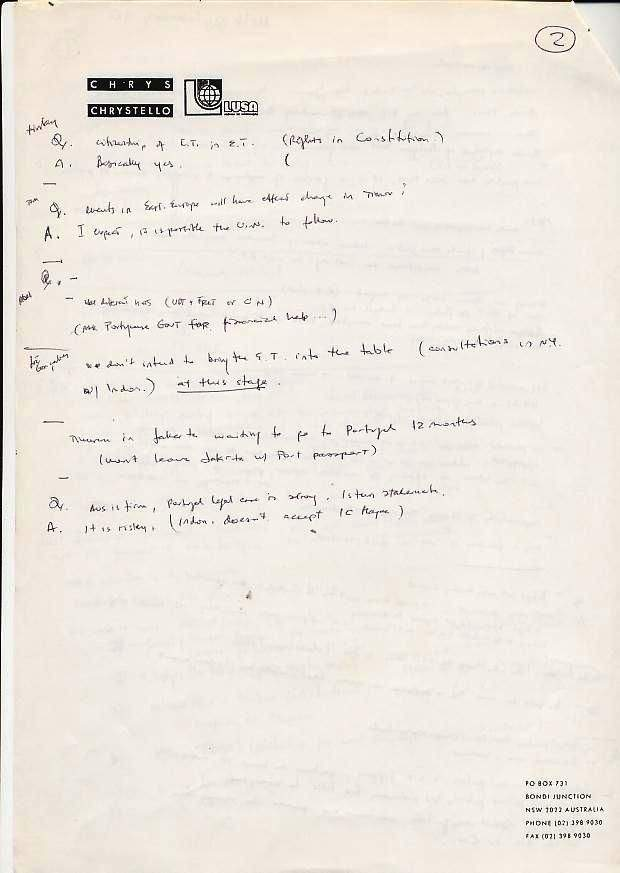 2
CHRYS
CHRYSTELLO
LUSA
Q. citizenship of E.T. in E.T. (Rights in Constitution)
A. Basically yes. (
Q. events in East. Europe will have effect change in Timor?
A. I expect, it is possible the U.N. to follow.
Q. -
- (UDT + FRET or UN)
(Portuguese Govt for financial help ...)
we don't intend to bring the E.T. into the table (consultations in NY.
w/ Indon.) at this stage.
Timorese in Jakarta waiting to go to Portugal 12 months
(won't leave Jakarta w/ Port passport)
Q. Aus is firm, Portugal legal case is strong.
A. It is risky, (Indon. doesn't accept IC Hague)
PO BOX 731
BONDI JUNCTION
NSW 2022 AUSTRALIA
PHONE (02) 398 9030
FAX (02) 398 9030